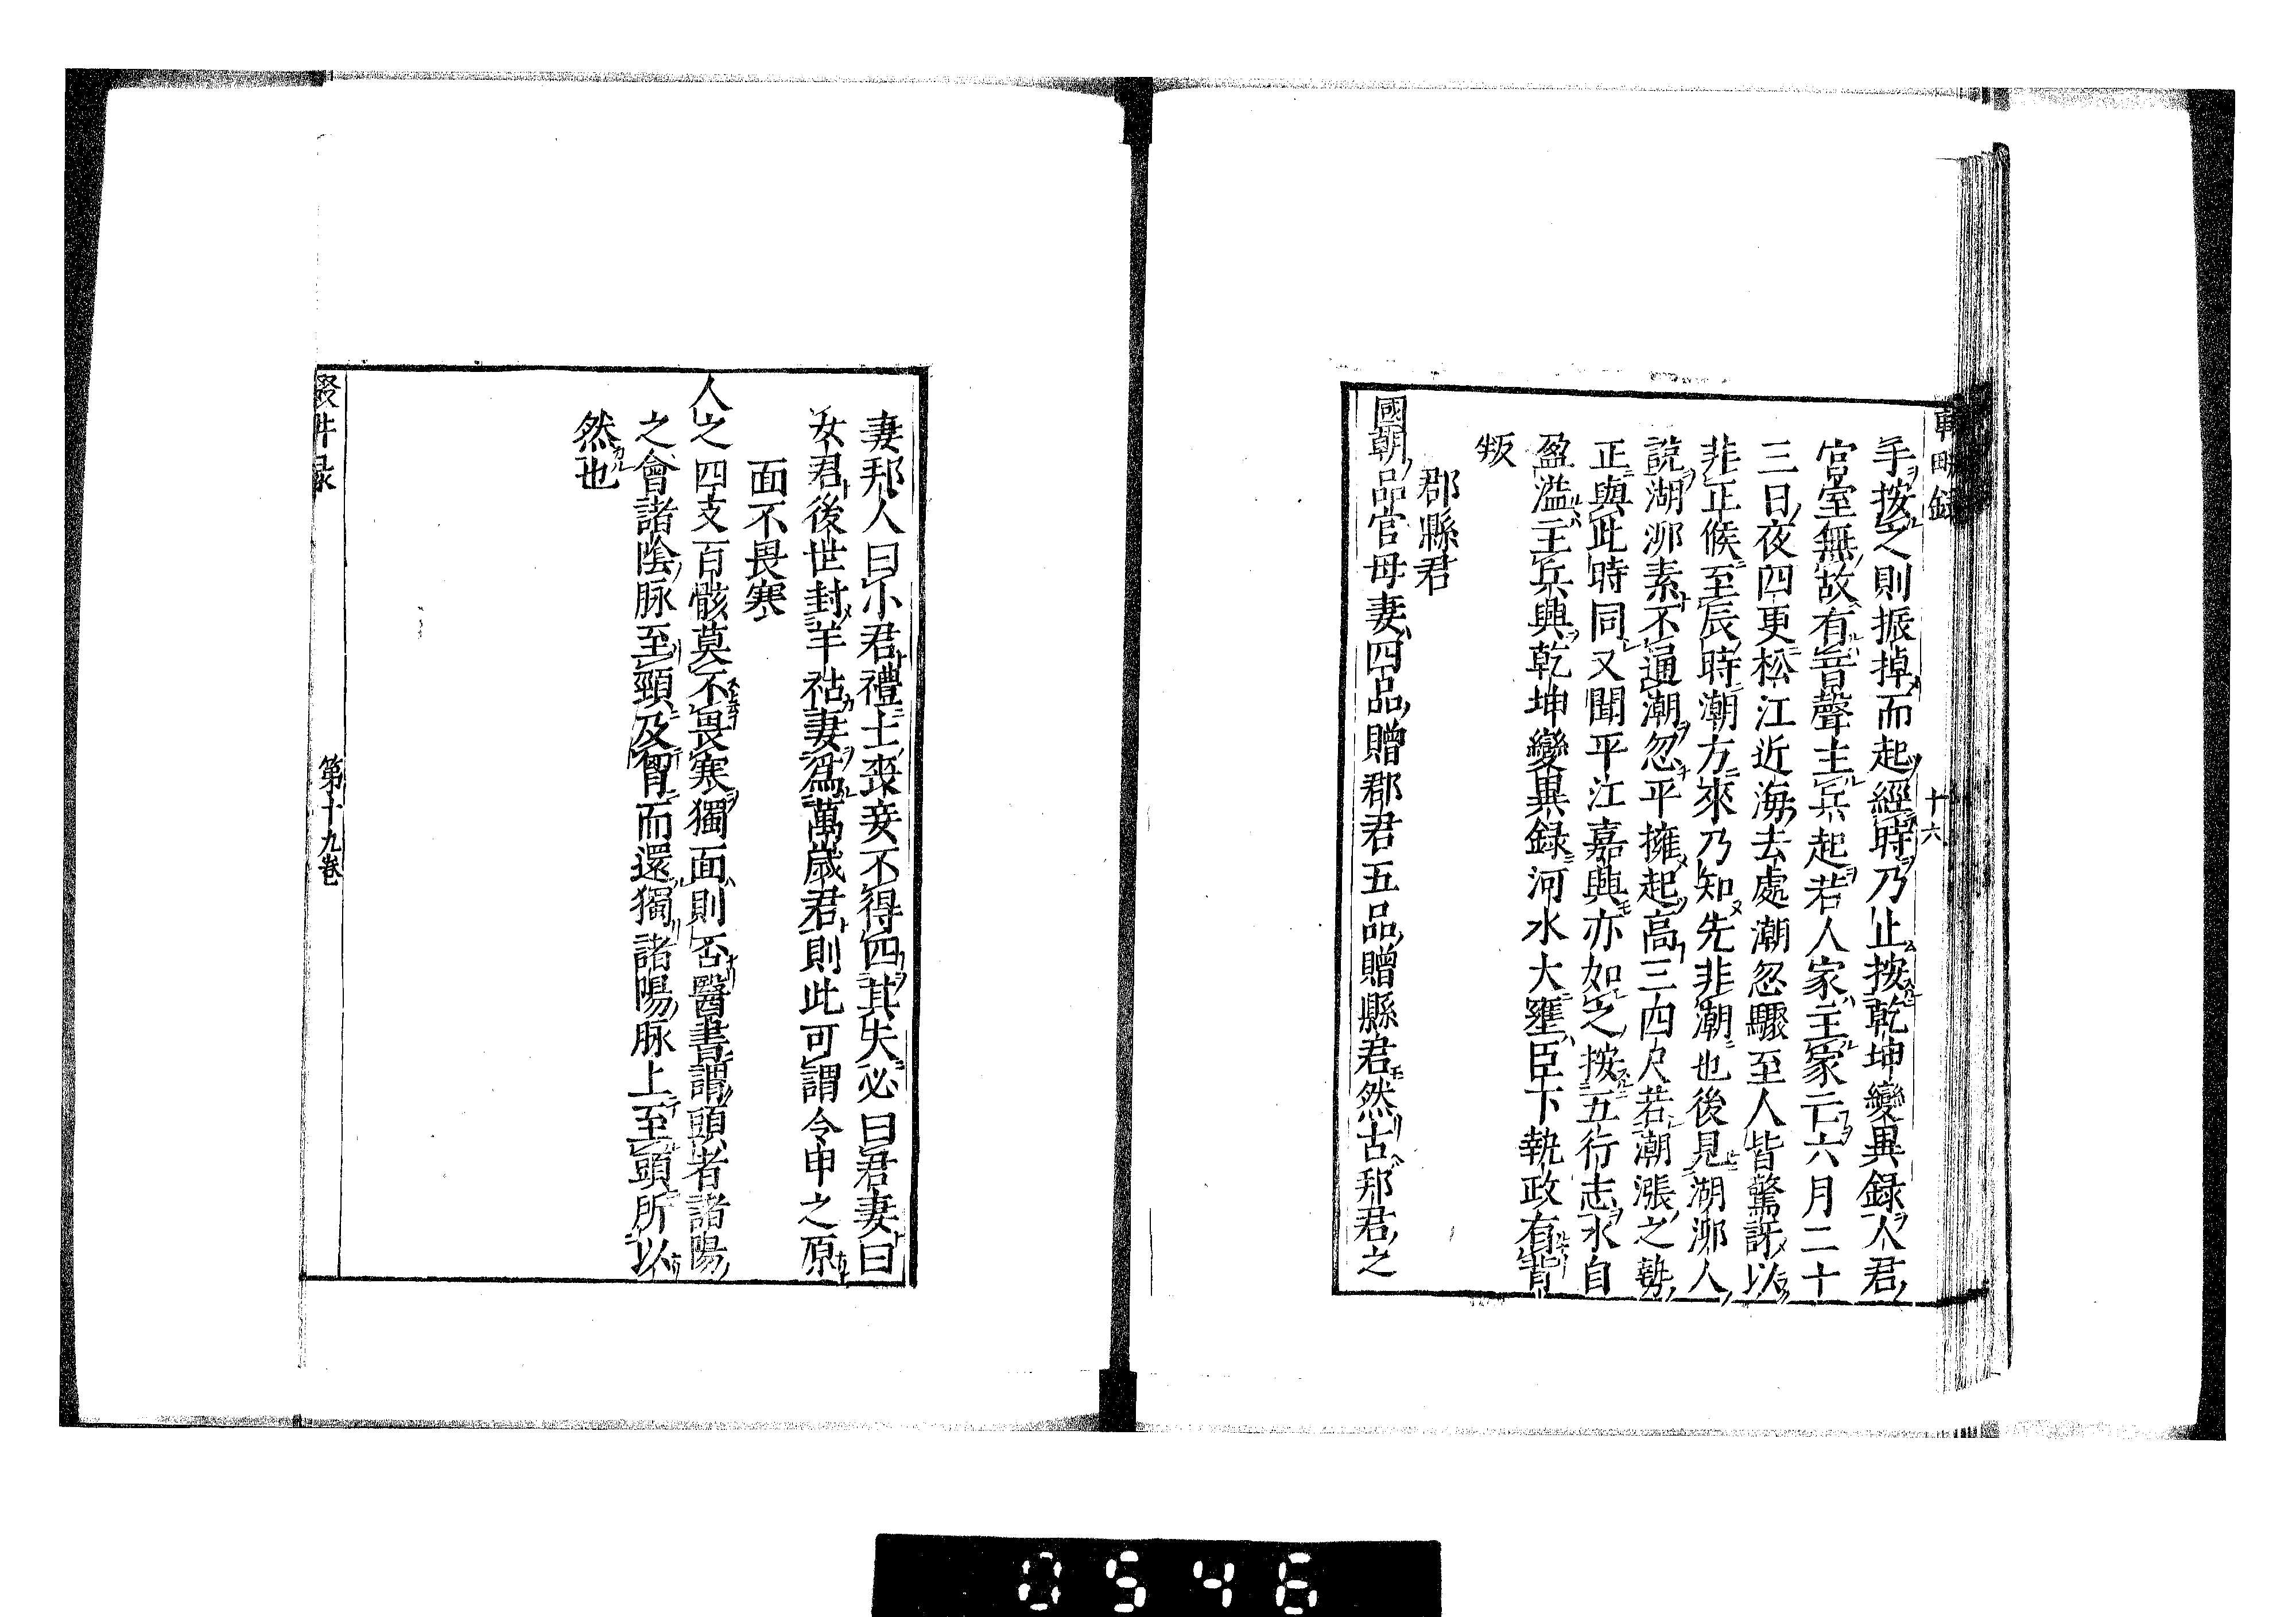 十六
手按之則振掉而起經時乃止按乾坤變異録人君
宮室無故有音聲主兵起若人家主家亡六月二十
三日夜四更松江近海去處潮忽驟至人皆驚訝以
非正候至辰時潮方來乃知先非潮也後見湖泖人
説湖泖素不通潮忽平擁起高三四尺若潮漲之勢
正與此時同又聞平江嘉興亦如之按五行志水自
盈溢主兵興乾坤變異録河水大壅臣下執政有背
叛
郡縣君
國朝品官母妻四品贈郡君五品贈縣君然古邦君之
妻邦人曰小君禮士喪妾不得四其失必曰君妻曰
女君後世封羊祜妻爲萬歲君則此可謂令申之原
面不畏寒
人之四支百骸莫不畏寒獨面則否醫書謂頭者諸陽
之會諸陰脉至頸及胷而還獨諸陽脉上至頭所以
然也
第十九卷
0546